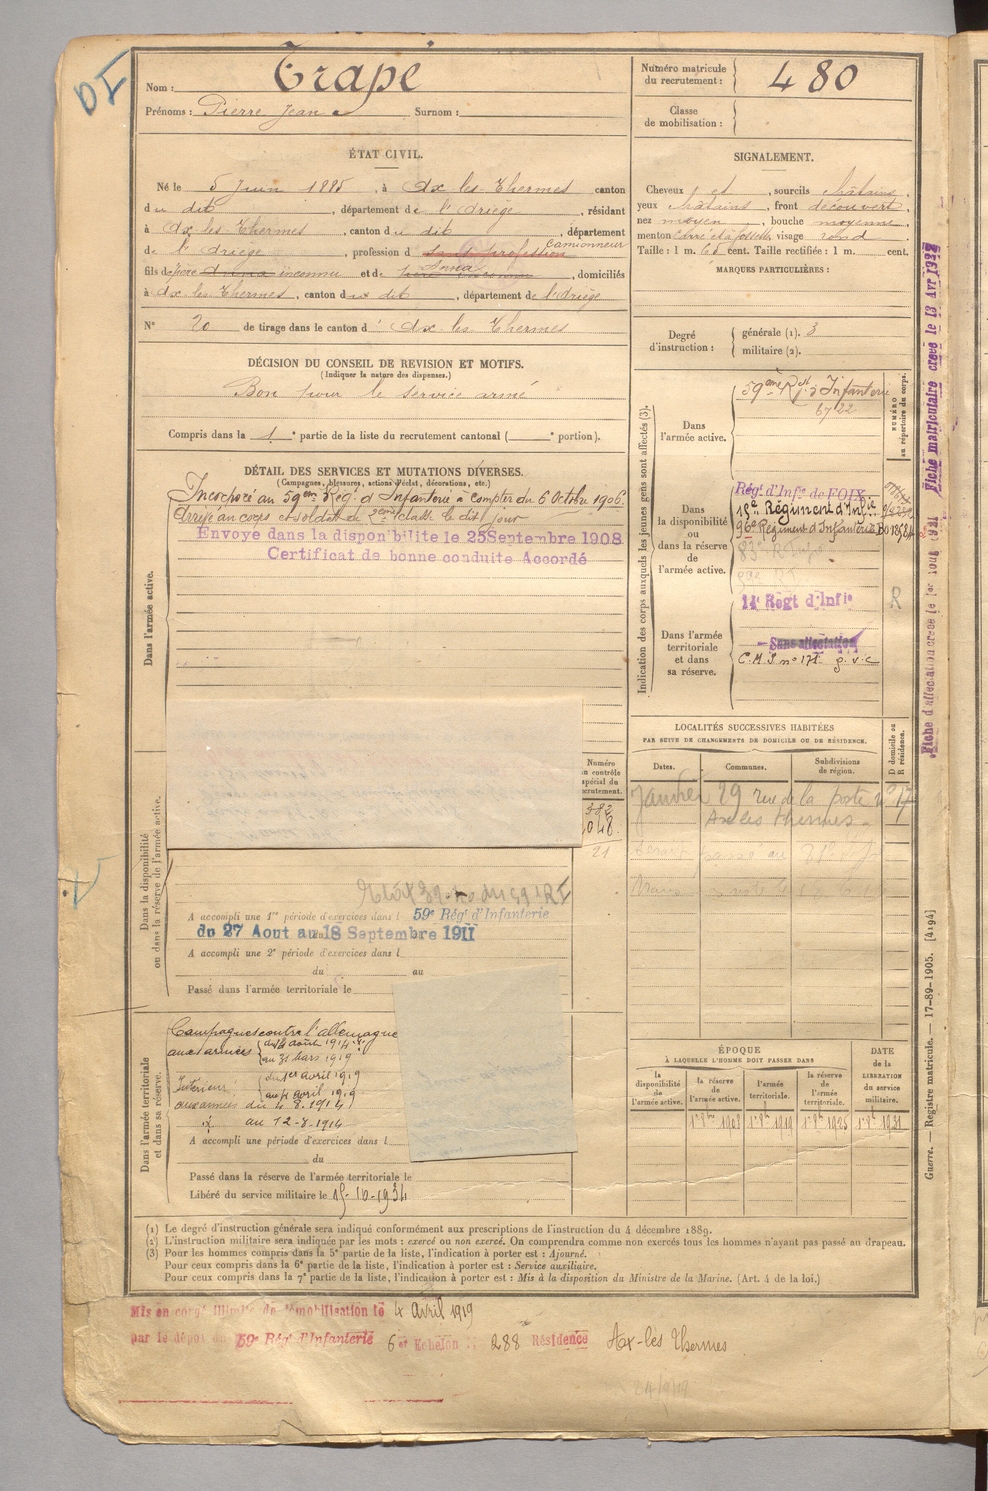 OI
Nom : Trapé
Prénoms : Pierre Jean Surnom :
Numéro matricule du recrutement : 480
Classe de mobilisation :
ÉTAT CIVIL.
Né le 5 Juin 1885, à Ax-les-Thermes canton
du dit, département de l'Ariège, résidant
à Ax-les-Thermes, canton du dit, département
de l'Ariège, profession de Sans profession Camionneur
fils de père Anna inconnu et de père inconnu Anna, domiciliés
à Ax-les-Thermes, canton du dit, département de l'Ariège
N° 20 de tirage dans le canton d'Ax-les-Thermes
SIGNALEMENT.
Cheveux et, sourcils châtains,
yeux châtains, front découvert,
nez moyen, bouche moyenne,
menton carré et à fossette visage rond
Taille : 1 m. 65 cent. Taille rectifiée : 1 m. cent.
MARQUES PARTICULIÈRES :
Degré d'instruction : générale (1). 3
militaire (2).
DÉCISION DU CONSEIL DE REVISION ET MOTIFS.
(Indiquer la nature des dispenses.)
Bon pour le service armé
Compris dans la 1e partie de la liste du recrutement cantonal ( e portion).
DÉTAIL DES SERVICES ET MUTATIONS DIVERSES.
(Campagnes, blessures, actions d'éclat, décorations, etc.)
Dans l'armée active.
Incorporé au 59ème Rég. d'Infanterie à compter du 6 Octobre 1906.
Arrivé au corps et soldat de 2ème classe le dit jour
Envoye dans la disponibilite le 25 Septembre 1908
Certificat de bonne conduite Accordé
Indication des corps auxquels les jeunes gens sont affectés (3).
NUMÉRO au répertoire du corps.
Dans l'armée active.
59ème Rgt d'Infanterie
6722
Dans la disponibilité ou dans la réserve de l'armée active.
Régt d'Infie de FOIX
15e Régiment d'Infie
96e Régiment d'Infanterie
83e
14e Regt d'Infie
R
Dans l'armée territoriale et dans sa réserve.
Sans affectation
C.M.I. n° 171 g.v.c
Fiche matriculaire creee le 13 Avr 1922
Fiche d'affectation creee le 1er Aout 1921
LOCALITÉS SUCCESSIVES HABITÉES
PAR SUITE DE CHANGEMENTS DE DOMICILE OU DE RÉSIDENCE.
Dates. Communes. Subdivisions de région. D domicile ou R résidence.
Janvier 29 rue de la poste n° 17
Ax les thermes
Numéro au contrôle spécial du recrutement.
382
21
Dans la disponibilité ou dans la réserve de l'armée active.
A accompli une 1re période d'exercices dans l 59e Régt d'Infanterie
du 27 Aout au 18 Septembre 1911
A accompli une 2e période d'exercices dans l
du au
Passé dans l'armée territoriale le
Dans l'armée territoriale et dans sa réserve.
Campagnes contre l'allemagne
aux armées du 4 août 1914
au 31 Mars 1919
Intérieur du 1er avril 1919
au 4 avril 1919
aux armées du 4.8.1914
au 12-8-1914
A accompli une période d'exercices dans l
du
Passé dans la réserve de l'armée territoriale le
Libéré du service militaire le 15-10-1934
ÉPOQUE
À LAQUELLE L'HOMME DOIT PASSER DANS
la disponibilité de l'armée active. la réserve de l'armée active. l'armée territoriale. la réserve de l'armée territoriale.
DATE de la LIBÉRATION du service militaire.
1er 8bre 1908 1er 8bre 1919 1er 8bre 1925 1er 8bre 1931
Guerre. — Registre matricule. — 17-89-1905. [4194]
(1) Le degré d'instruction générale sera indiqué conformément aux prescriptions de l'instruction du 4 décembre 1889.
(2) L'instruction militaire sera indiquée par les mots : exercé ou non exercé. On comprendra comme non exercés tous les hommes n'ayant pas passé au drapeau.
(3) Pour les hommes compris dans la 5e partie de la liste, l'indication à porter est : Ajourné.
Pour ceux compris dans la 6e partie de la liste, l'indication à porter est : Service auxiliaire.
Pour ceux compris dans la 7e partie de la liste, l'indication à porter est : Mis à la disposition du Ministre de la Marine. (Art. 4 de la loi.)
Mis en congé illimité de démobilisation le 4 avril 1919
par le dépôt du 59e Régt d'Infanterie 6 et Echelon 288 Résidence Ax-les Thermes
24/9/19